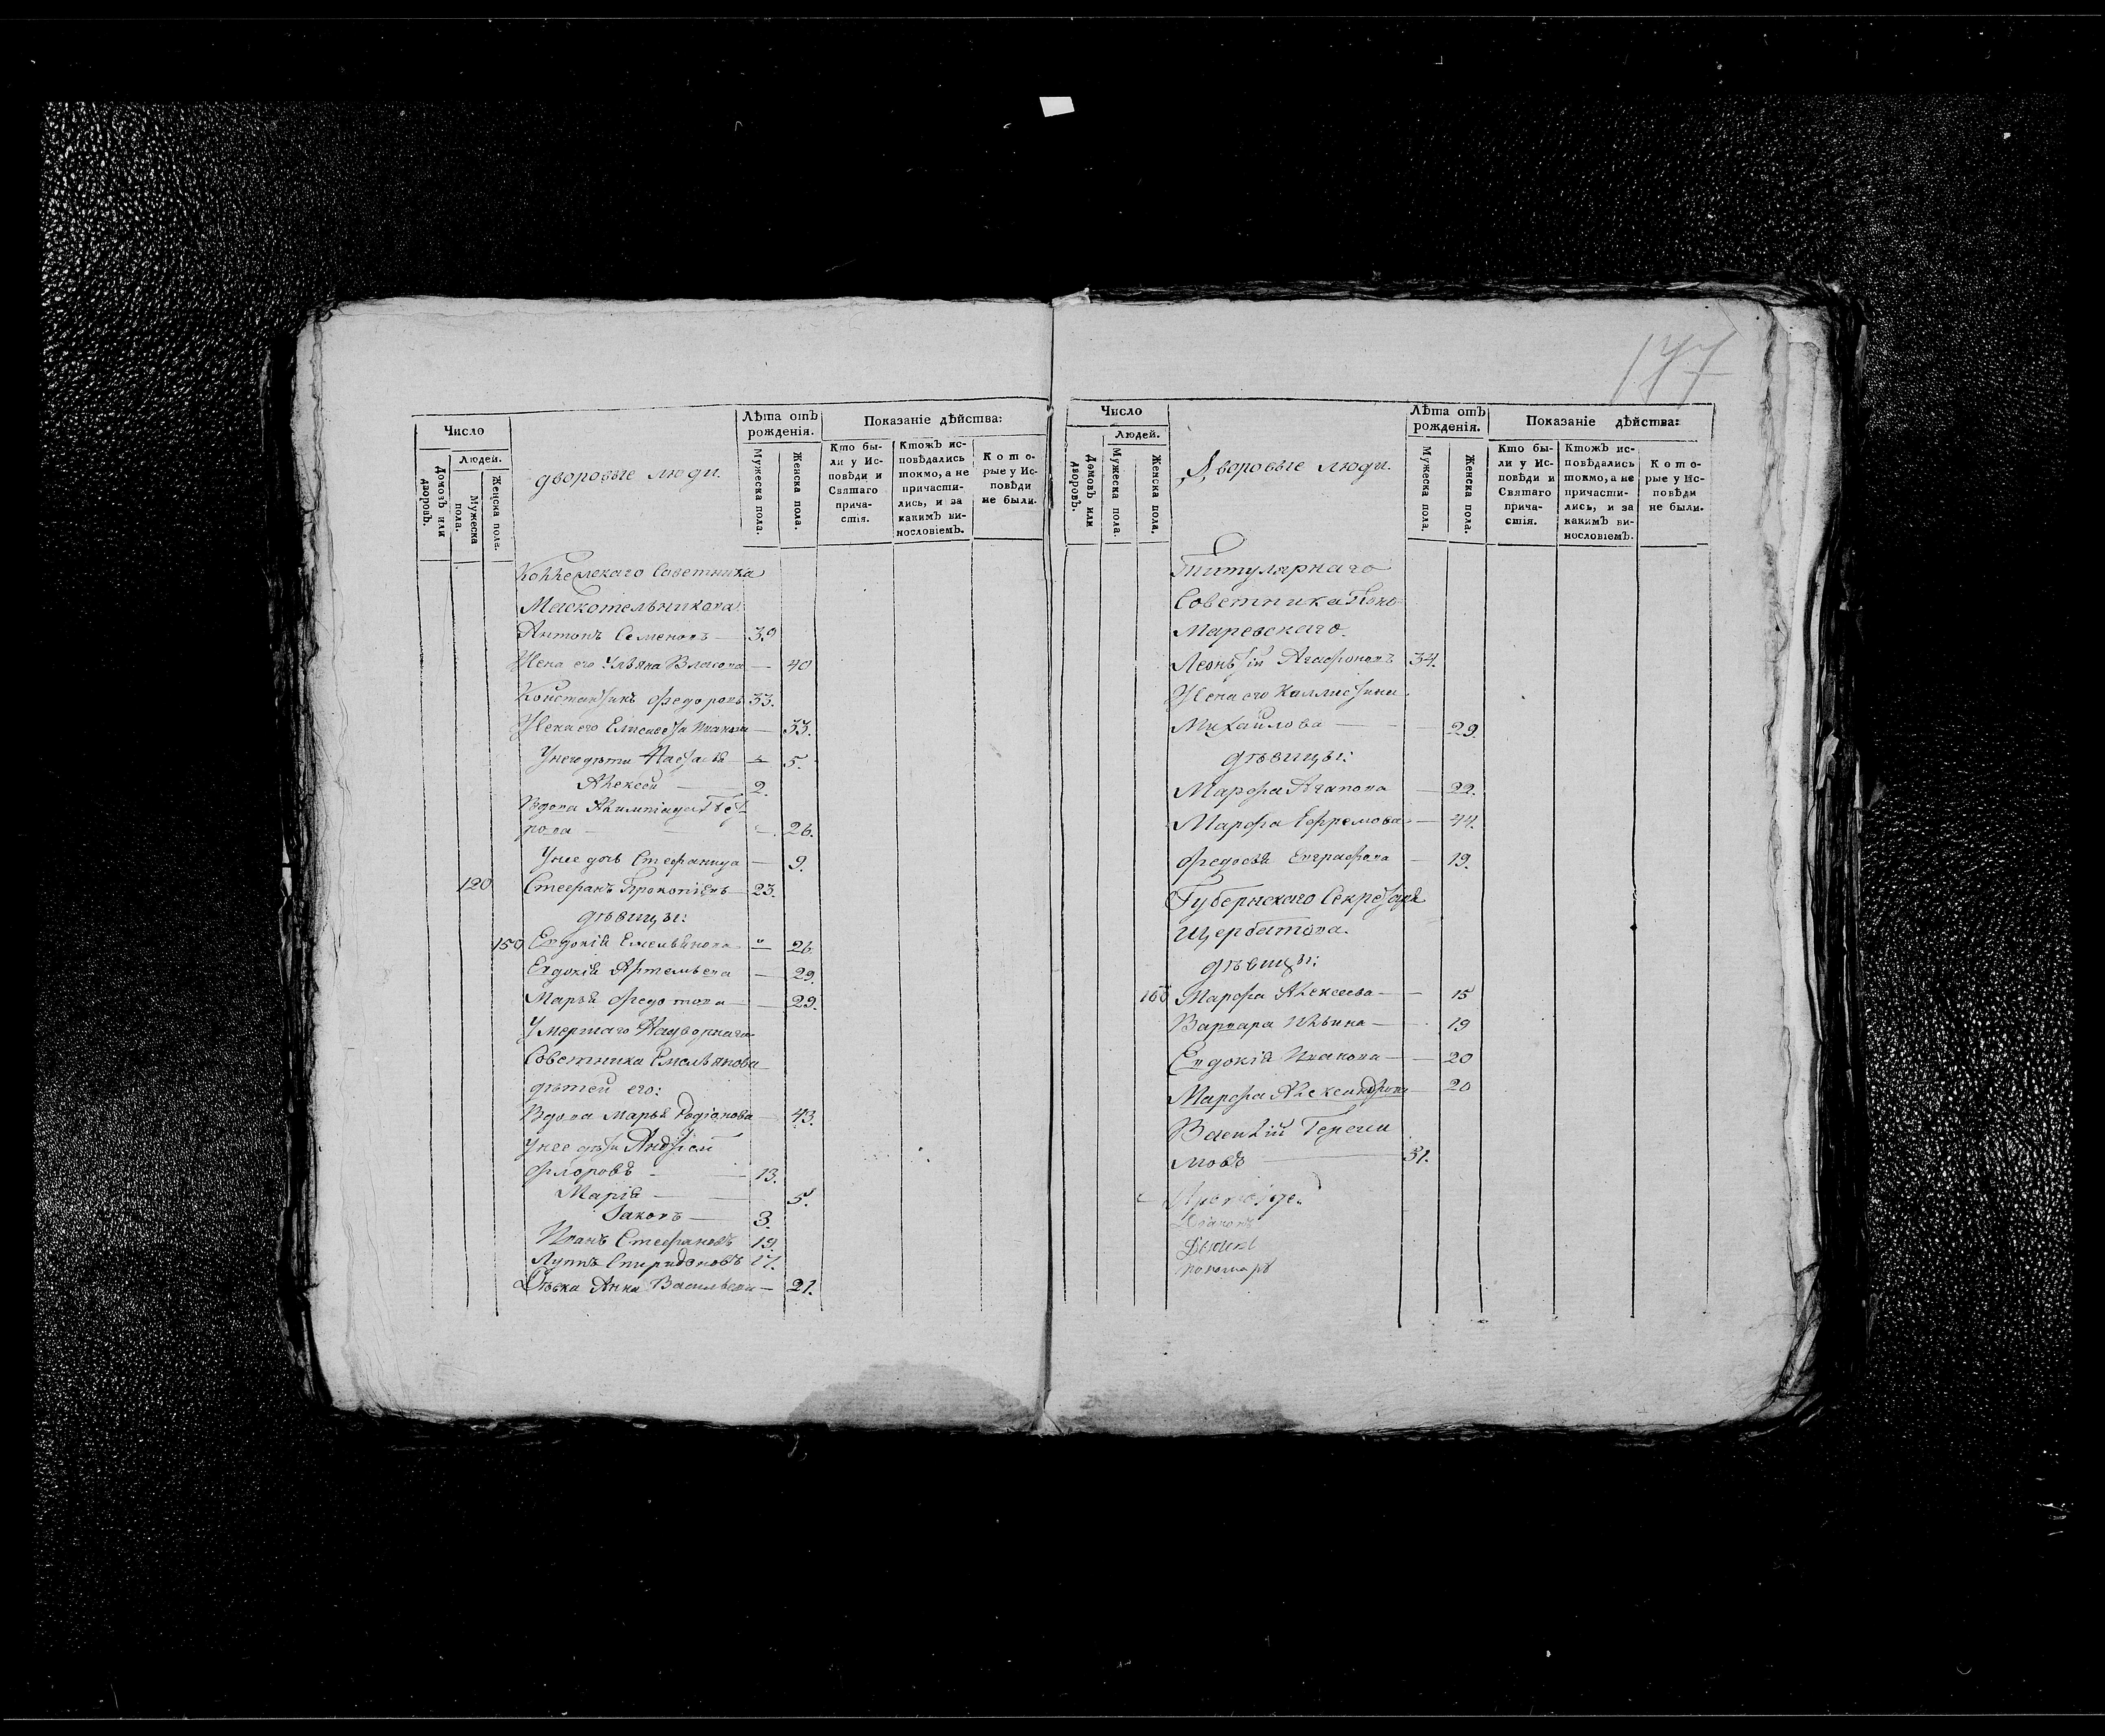 177
Число
Людей.
Домовъ или дворовъ.
Мужеска пола.
Женска пола.
дворовые люди.
Лѣта отъ рожденія.
Мужеска пола.
Женска пола.
Показаніе дѣйства:
Кто бы-
ли у Ис-
повѣди и
Святаго
прича-
стія.
Ктожъ ис-
повѣдались
токмо, а не
причасти-
лись, и за
какимъ ви-
нословіемъ.
Кото-
рые у Ис-
повѣди
не были.
Коллежскаго Советника
Москотельникова
Антонъ Семеновъ — 39
Жена его Ульяна Власова — 40
Константинъ Федоровъ 33.
Жена его Елисавета Иванова — 33.
У него дети Настасья — 5.
Алексей — 2.
Вдова Олимпіада Пет
рова — 26.
У нее дочь Стефанида — 9.
120 Стефанъ Прокопіевъ 23.
дѣвицы:
150 Евдокія Емельянова " 26
Евдокія Артемьева — 29.
Марья Федотова — 29.
Умершаго Надворнаго
Советника Емельянова
дѣтей его:
Вдова Марья Родіонова — 43.
У нее дѣти Андрей
Флоровъ — 13.
Марія — 5.
Іаковъ — 3.
Иванъ Стефановъ 19.
Луппъ Спиридоновъ 17.
Дѣвка Анна Васильева — 21.
Число
Людей.
Домовъ или дворовъ.
Мужеска пола.
Женска пола.
Дворовые люди.
Лѣта отъ рожденія.
Мужеска пола.
Женска пола.
Показаніе дѣйства:
Кто бы-
ли у Ис-
повѣди и
Святаго
прича-
стія.
Ктожъ ис-
повѣдались
токмо, а не
причасти-
лись, и за
какимъ ви-
нословіемъ.
Кото-
рые у Ис-
повѣди
не были.
Титулярнаго
Советника Поно
Маревскаго.
Леонтій Агафоновъ 34.
Жена его Каллистина
Михайлова — 29.
дѣвицы:
Марфа Агапова — 22.
Марфа Ефремова — 44.
Федосья Евграфова — 19.
Губернскаго Секретаря
Щербатова.
дѣвицы:
160 Марфа Алексеева — 15
Варвара Ильина — 19
Евдокія Иванова — 20
Марфа Александрова — 20
Василій Гераси
мовъ — 31.
Діаконъ
Дьячекъ
пономарь